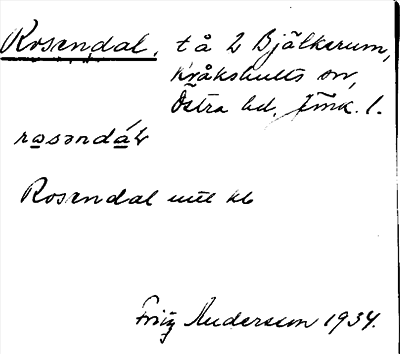 Rosendal, t å 2 Bjälkerum,
Kråkshults sn,
Östra hd, Jmk. l.
rosəndáɫ
Rosendal utt kb
Fritz Andersson 1934.